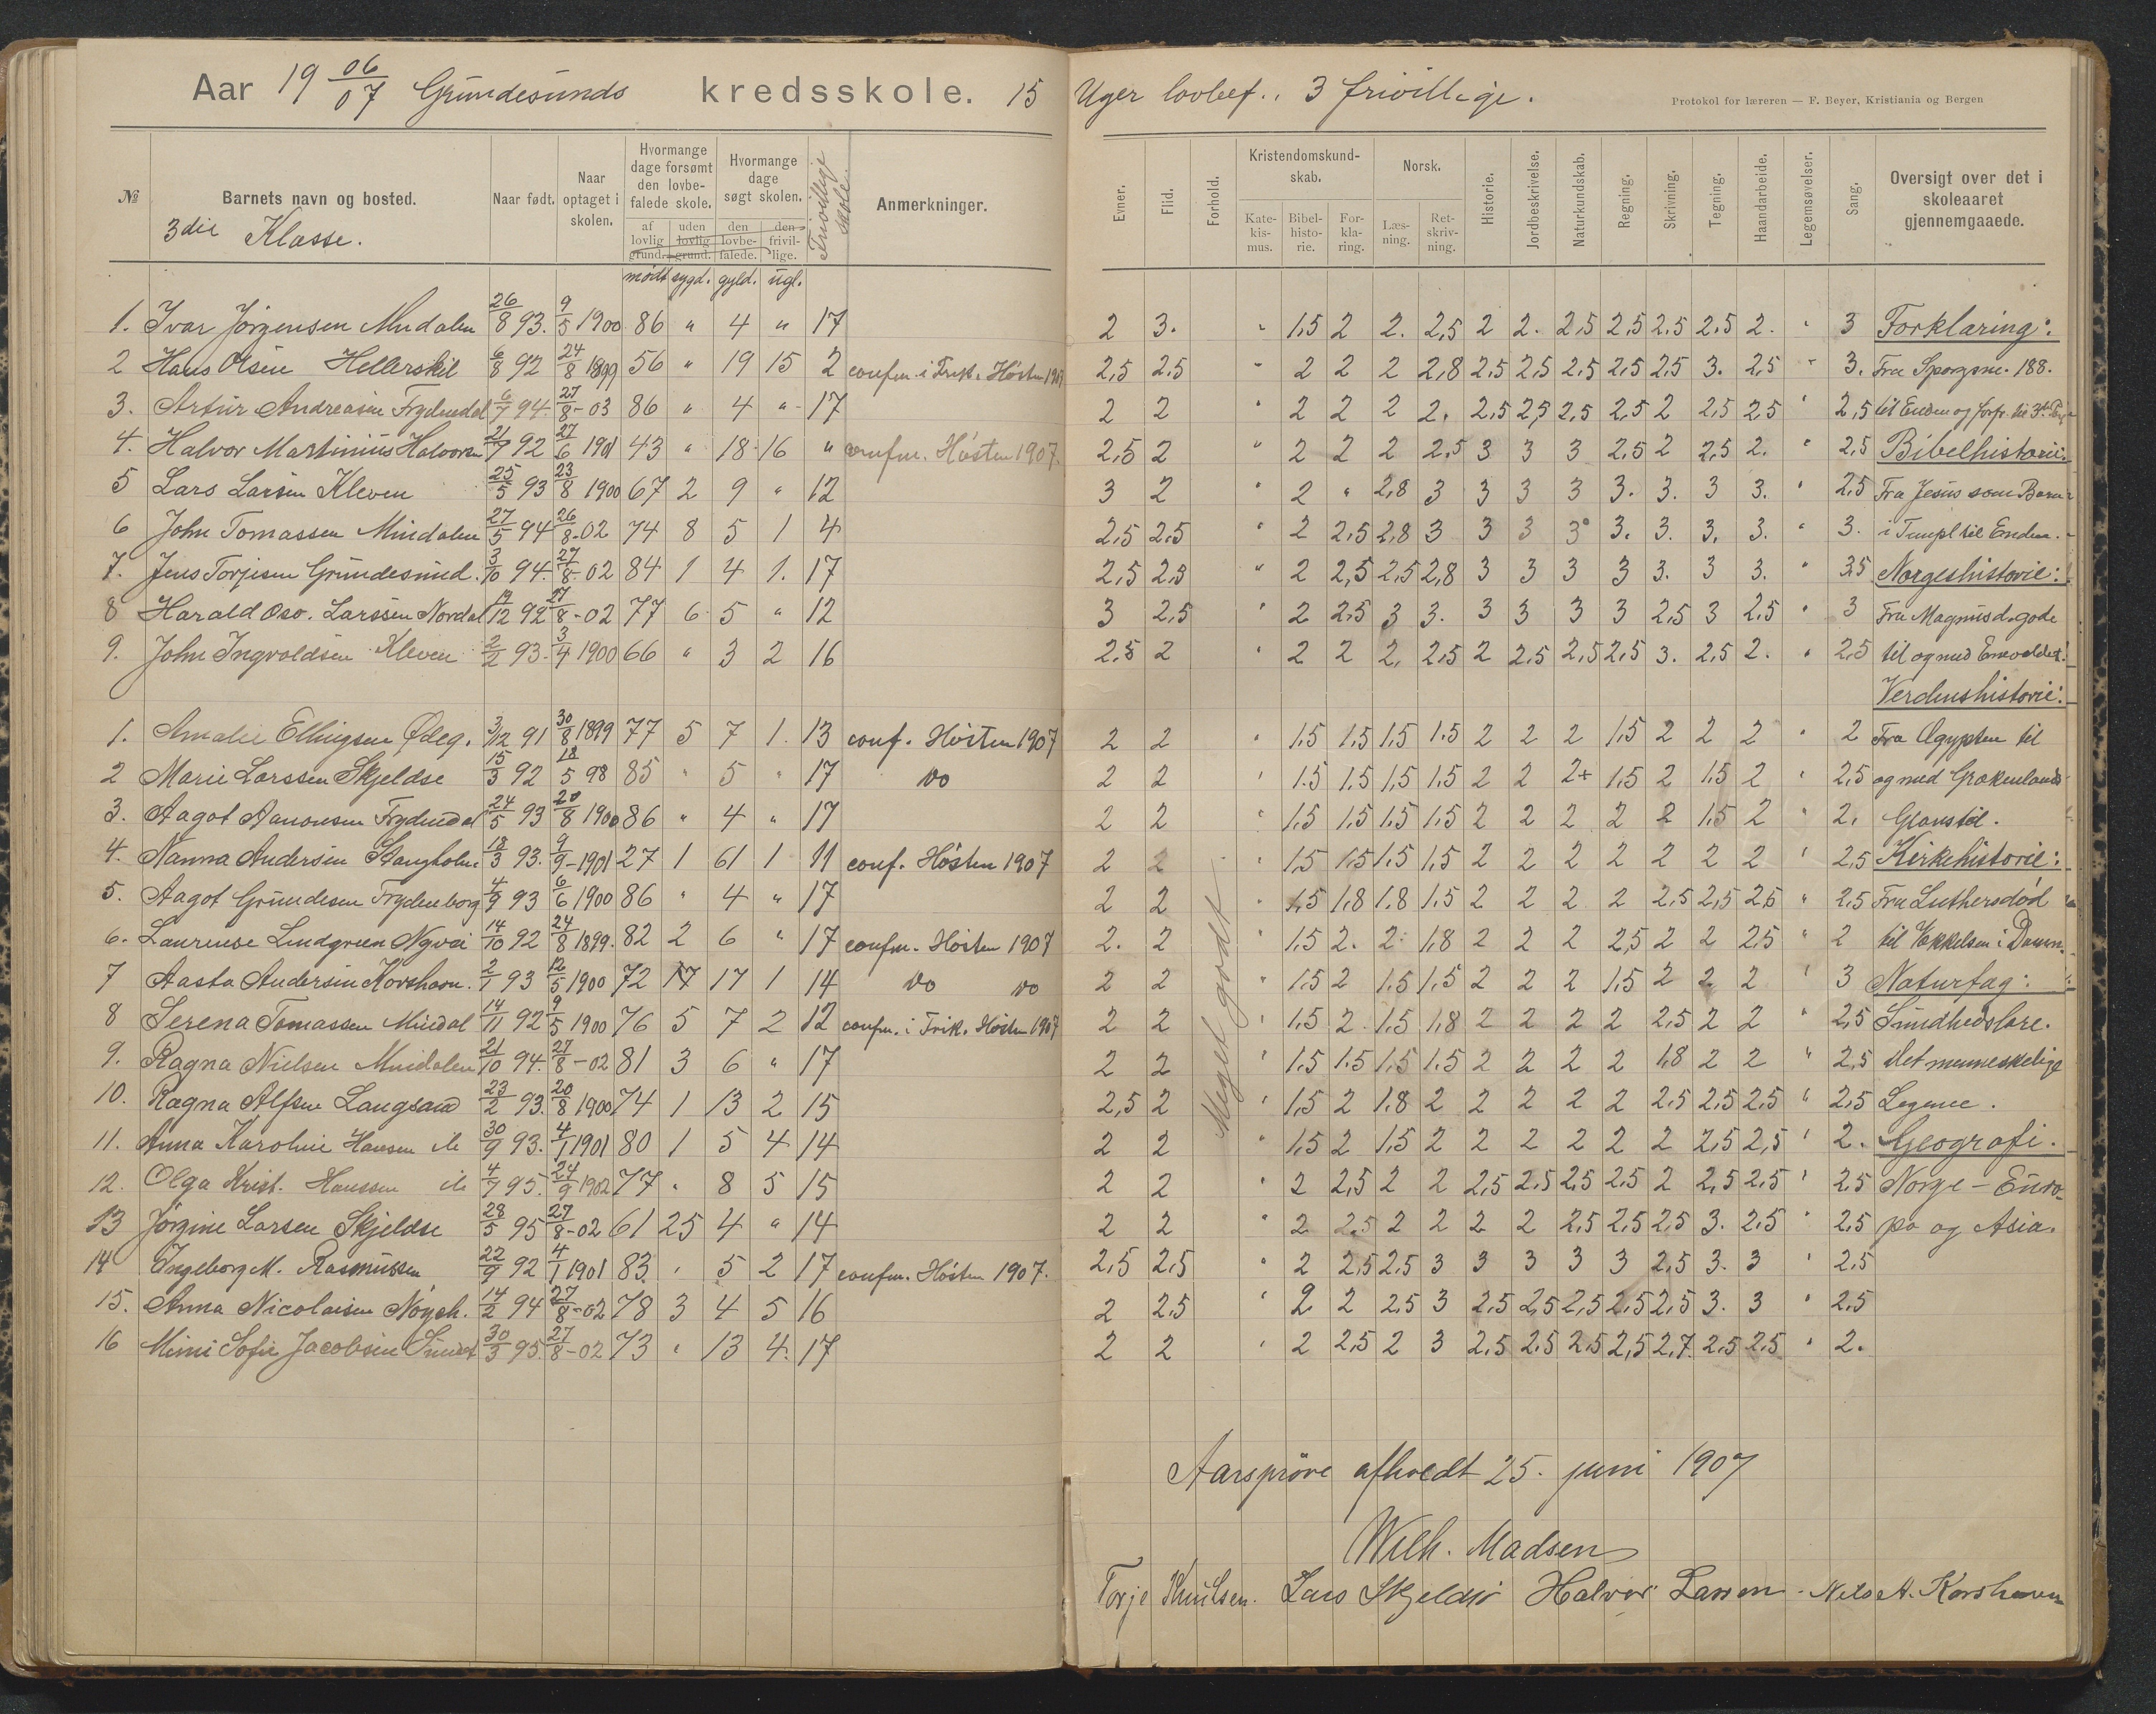 Aar 19 06/07 Grundesunds kredsskole. 15 Uger lovbef., 3 frivillige.
Protokol for læreren — F. Beyer, Kristiania og Bergen
№ Barnets navn og bosted. Naar født. Naar optaget i skolen. Hvormange dage forsømt den lovbefalede skole. Hvormange dage søgt skolen. Frivillige skolen Anmerkninger.
af lovlig grund. uden lovlig grund. den lovbefalede. den frivillige.
mødt sygd. gyld. ugl.
3die Klasse.
Evner. Flid. Forhold. Kristendomskundskab. Norsk. Historie. Jordbeskrivelse. Naturkundskab. Regning. Skrivning. Tegning. Haandarbeide. Legemsøvelser. Sang. Oversigt over det i skoleaaret gjennemgaaede.
Katekismus. Bibelhistorie. Forklaring. Læsning. Retskrivning.
1. Ivar Jörgensen Mudalen 26/8 93. 9/5 1900 86 " 4 " 17 2 3. " 1,5 2 2. 2,5 2 2. 2,5 2,5 2,5 2,5 2. " 3 Forklaring:
2 Hans Olsen Hellerskil 6/8 92 24/8 1899 56 " 19 15 2 confm. i Frik. Høsten 1907 2,5 2,5 " 2 2 2 2,8 2,5 2,5 2,5 2,5 2,5 3. 2,5 " 3. Fra Spørgsm. 188.
3. Artur Andreasen Frydendal 6/7 94. 27/8-03 86 " 4 " 17 2 2 " 2 2 2 2. 2,5 2,5 2,5 2,5 2 2,5 2,5 " 2,5 til Enden og forfr. til 3die
4. Halvor Martinius Halvorsen 21/7 92 27/6 1901 43 " 18 16 " confm. Høsten 1907. 2,5 2 " 2 2 2 2,5 3 3 3 2,5 2 2,5 2. " 2,5 Bibelhistorie:
5 Lars Larsen Kleven 25/5 93 23/8 1900 67 2 9 " 12 3 2 " 2 " 2,8 3 3 3 3 3. 3. 3 3. " 2,5 Fra Jesus som Barn
6 John Tomassen Mudalen 27/5 94 26/8-02 74 8 5 1 4 2,5 2,5 " 2 2,5 2,8 3 3 3 3 3. 3. 3. 3. " 3. i Templ til Enden.
7. Jens Torjesen Grundesund. 3/10 94. 27/8-02 84 1 4 1. 17 2,5 2,5 " 2 2,5 2,5 2,8 3 3 3 3 3. 3 3. " 3,5 Norgeshistorie:
8 Harald Osv. Larssen Nordal 19/12 92 27/8-02 77 6 5 " 12 3 2,5 " 2 2,5 3 3. 3 3 3 3 2,5 3 2,5 " 3 Fra Magnus d. gode
9. John Ingvoldsen Kleven 2/2 93. 3/4 1900 66 " 3 2 16 2,5 2 " 2 2 2, 2,5 2 2,5 2,5 2,5 3. 2,5 2. " 2,5 til og med Enevoldet.
Verdenshistorie:
1. Amalie Ellingsen Ødeg. 3/12 91 30/8 1899 77 5 7 1. 13 conf. Høsten 1907 2 2 " 1,5 1,5 1,5 1,5 2 2 2 1,5 2 2 2 " 2 Fra Ægypten til
2 Marie Larssen Skjeldsø 15/3 92 18/5 98 85 " 5 " 17 do 2 2 " 1,5 1,5 1,5 1,5 2 2 2+ 1,5 2 1,5 2 " 2,5 og med Grækenlands
3. Aagot Aanonsen Frydendal 24/5 93 20/8 1900 86 " 4 " 17 2 2 " 1,5 1,5 1,5 1,5 2 2 2 2 2 1,5 2 " 2. Glanstid.
4. Nanna Andersen Stangholm. 18/3 93. 9/9-1901 27 1 61 1 11 conf. Høsten 1907 2 2 " 1,5 1,5 1,5 1,5 2 2 2 2 2 2 2 " 2,5 Kirkehistorie:
5. Aagot Grundesen Frydenborg 4/9 93 6/6 1900 86 " 4 " 17 2 2 " 1,5 1,8 1,8 1,5 2 2 2 2 2,5 2,5 2,5 " 2,5 Fra Luthersdød
6. Laurense Lindgreen Ngvei 14/10 92 24/8 1899. 82 2 6 " 17 confm. Høsten 1907 2. 2 " 1,5 2. 2. 1,8 2 2 2 2,5 2 2 2,5 " 2 til Vækkelsen i Danm.
7 Aasta Andersen Korshavn. 2/7 93 12/5 1900 72 17 17 1 14 do do 2 2 " 1,5 2 1,5 1,5 2 2 2 1,5 2 2. 2 " 3 Naturfag:
8 Serena Tomassen Mudal 14/11 92 9/5 1900 76 5 7 2 12 confm. i Frik. Høsten 1907 2 2 1,5 2 1,5 1,8 2 2 2 2 2,5 2 2 " 2,5 Sundhedslære.
9. Ragna Nielsen Mudalen 21/10 94. 27/8-02 81 3 6 " 17 2 2 " 1,5 1,5 1,5 1,5 2 2 2 2 1,8 2 2 " 2,5 det menneskelige
10. Ragna Alfsen Langsand 23/2 93. 20/8 1900 74 1 13 2 15 2,5 2 " 1,5 2 1,8 2 2 2 2 2 2,5 2,5 2,5 " 2,5 Legeme.
11. Anna Karoline Hansen ib 30/9 93. 4/1 1901 80 1 5 4 14 2 2 " 1,5 2 1,5 2 2 2 2 2 2 2,5 2,5 " 2. Geografi.
12. Olga Krist. Hanssen ib 4/7 95. 24/9 1902 77 " 8 5 15 2 2 " 2 2,5 2 2 2,5 2,5 2,5 2,5 2 2,5 2,5 " 2,5 Norge — Euro-
13 Jørgine Larsen Skjeldsø 28/5 95 27/8-02 61 25 4 " 14 2 2 " 2 2,5 2 2 2 2 2,5 2,5 2,5 3. 2,5 " 2,5 pa og Asia.
14 Ingeborg M. Rasmussen 22/9 92 4/1 1901 83 " 5 2 17 confm. Høsten 1907. 2,5 2,5 " 2 2,5 2,5 3 3 3 3 3 2,5 3. 3 " 2,5
15. Anna Nicolaisen Nøgsh. 14/2 94 27/8-02 78 3 4 5 16 2 2,5 " 2 2 2,5 3 2,5 2,5 2,5 2,5 2,5 3. 3 " 2,5
16 Mimi Sofie Jacobsen Sundet 30/3 95. 27/8-02 73 " 13 4. 17 2 2 " 2 2,5 2 3 2,5 2,5 2,5 2,5 2,7. 2,5 2,5 " 2.
Meget godt
Aarsprøve afholdt 25. juni 1907
Wilh. Madsen
Torje Knutsen. Lars Skjeldsø Halvor Larsen. Nils A. Korshavn